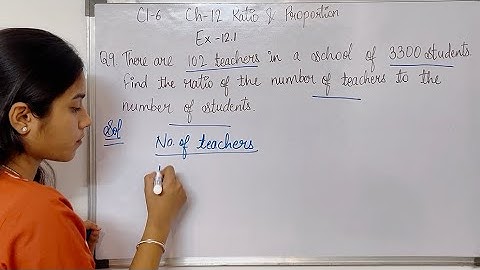 Cl-6 Ch-12 Ratio & Proportion
Ex-12.1
Q9. There are 102 teachers in a school of 3300 students.
Find the ratio of the number of teachers to the
number of students.
Sol
No. of teachers